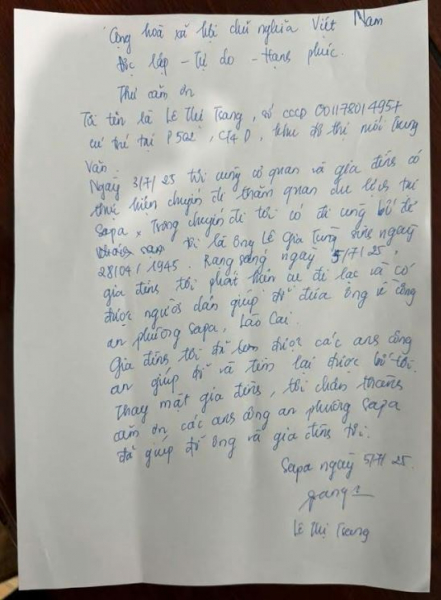 Cộng hoà xã hội chủ nghĩa Việt Nam
Độc lập - Tự do - Hạnh phúc.
Thư cảm ơn
Tôi tên là Lê Thị Trang, số cccd 001178014957
cư trú tại P502, CT4D, khu đô thị mới Trung
Văn.
Ngày 3/7/25 tôi cùng cơ quan và gia đình có
thực hiện chuyến đi thăm quan du lịch tại
Sapa. Trong chuyến đi tôi có đi cùng bố đẻ
tôi là ông Lê Gia sinh ngày
28/04/1945. Rạng sáng ngày 5/7/25,
gia đình tôi phát hiện cụ đi lạc và có
được người dân giúp đỡ đưa ông về công
an phường Sapa, Lào Cai.
Gia đình tôi đã được các anh công
an giúp đỡ và tìm lại được bố tôi.
Thay mặt gia đình, tôi chân thành
cảm ơn các anh công an phường Sapa
đã giúp đỡ ông và gia đình tôi.
Sapa ngày 5/7/25.
Lê Thị Trang